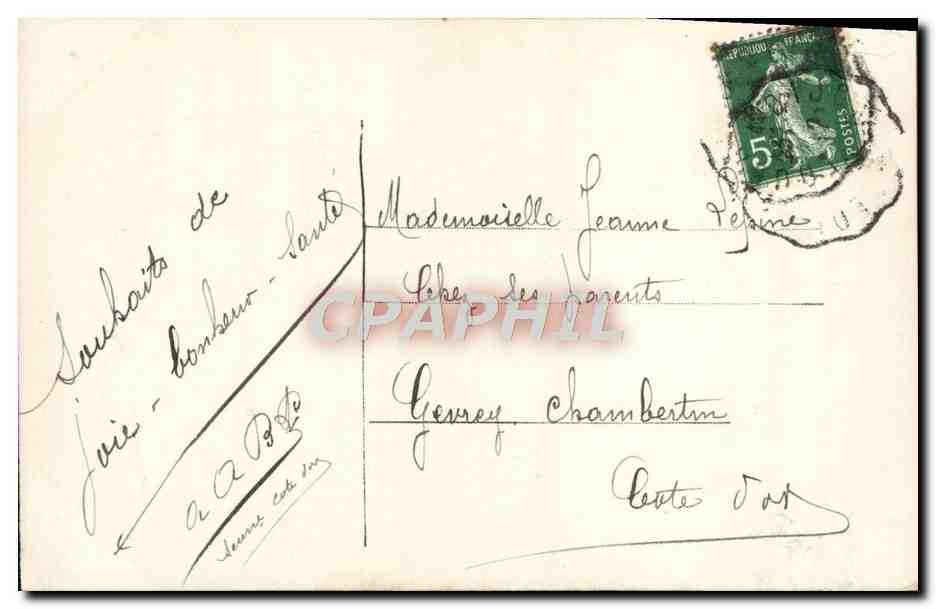 Souhaits de
joie - bonheur - Santé
Mademoiselle Jeanne Pépine
Chez ses parents
Gevrey Chambertin
Cote d'or
cote d'or
REPUBLIQUE FRANÇA
5
POSTES
CPAPHIL